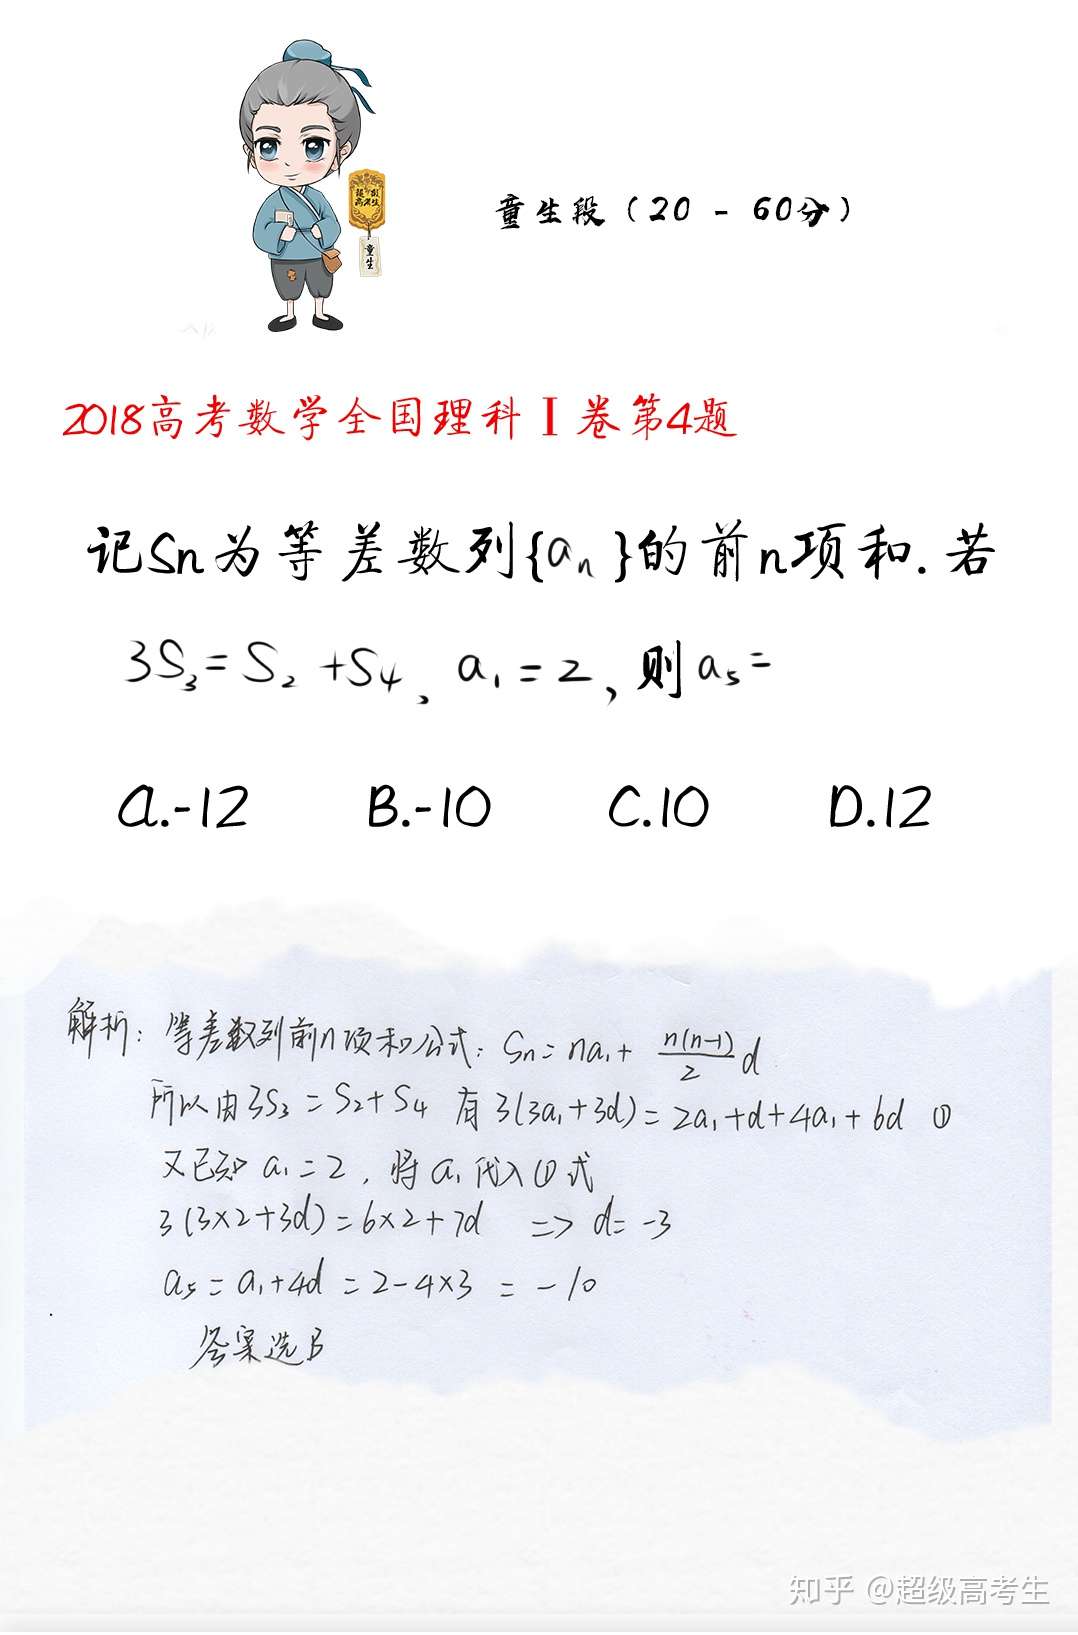 超级
高考生
童生
童生段（20 - 60分）
2018高考数学全国理科Ⅰ卷第4题
记Sn为等差数列{an}的前n项和.若
3S₃=S₂+S₄, a₁=2, 则a₅=
A.-12 B.-10 C.10 D.12
解析: 等差数列前n项和公式: Sn=na₁+n(n-1)/2 d
所以由3S₃=S₂+S₄ 有3(3a₁+3d)=2a₁+d+4a₁+6d ①
又已知a₁=2, 将a₁代入①式
3(3×2+3d)=6×2+7d => d=-3
a₅=a₁+4d=2-4×3=-10
答案选B
知乎 @超级高考生